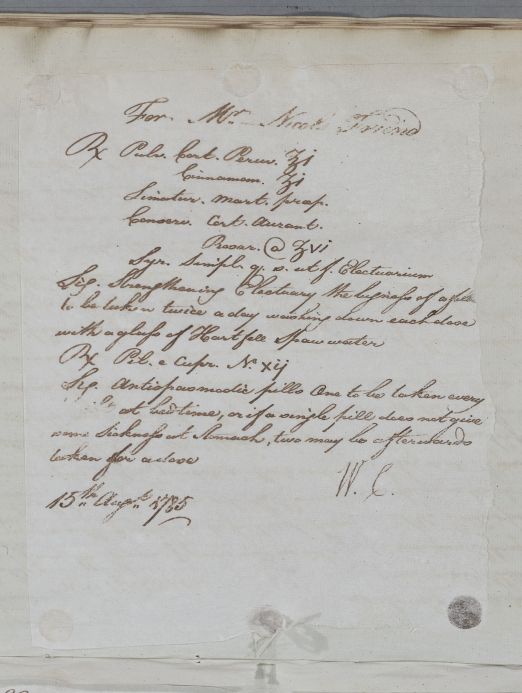 For Mr. Nicol's Friend
Rx Pulv. Cort. Peruv. ℥j
Cinnamom. ʒj
Limatur. mart. prap.
Conserv. Cort. Aurant.
Rosar. @ ʒvi
Syr. Simpl. q. s. ut f. Electuarium
Sig. Strengthening Electuary the bigness of a
to be taken twice a day washing down each dose
with a glass of Hartfell Spaw water
Rx Pil. e Cupr. No. xij
Sig. Antispasmodic pills One to be taken every
at bedtime, or if a single pill does not give
some Sickness at Stomach, two may be afterwards
taken for a dose
W. C.
15th Augt. 1785